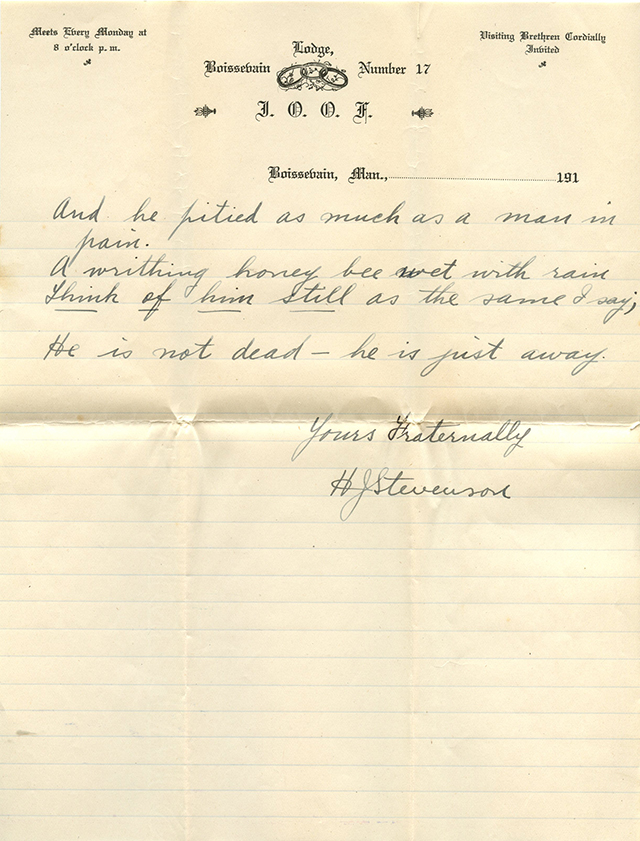 Meets Every Monday at
8 o'clock p. m.
Visiting Brethren Cordially
Invited
Lodge,
Boissevain Number 17
I. O. O. F.
Boissevain, Man., 191
And he pitied as much as a man in
pain.
A writhing honey bee wet with rain
Think of him still as the same I say,
He is not dead – he is just away.
Yours Fraternally
H J Stevenson